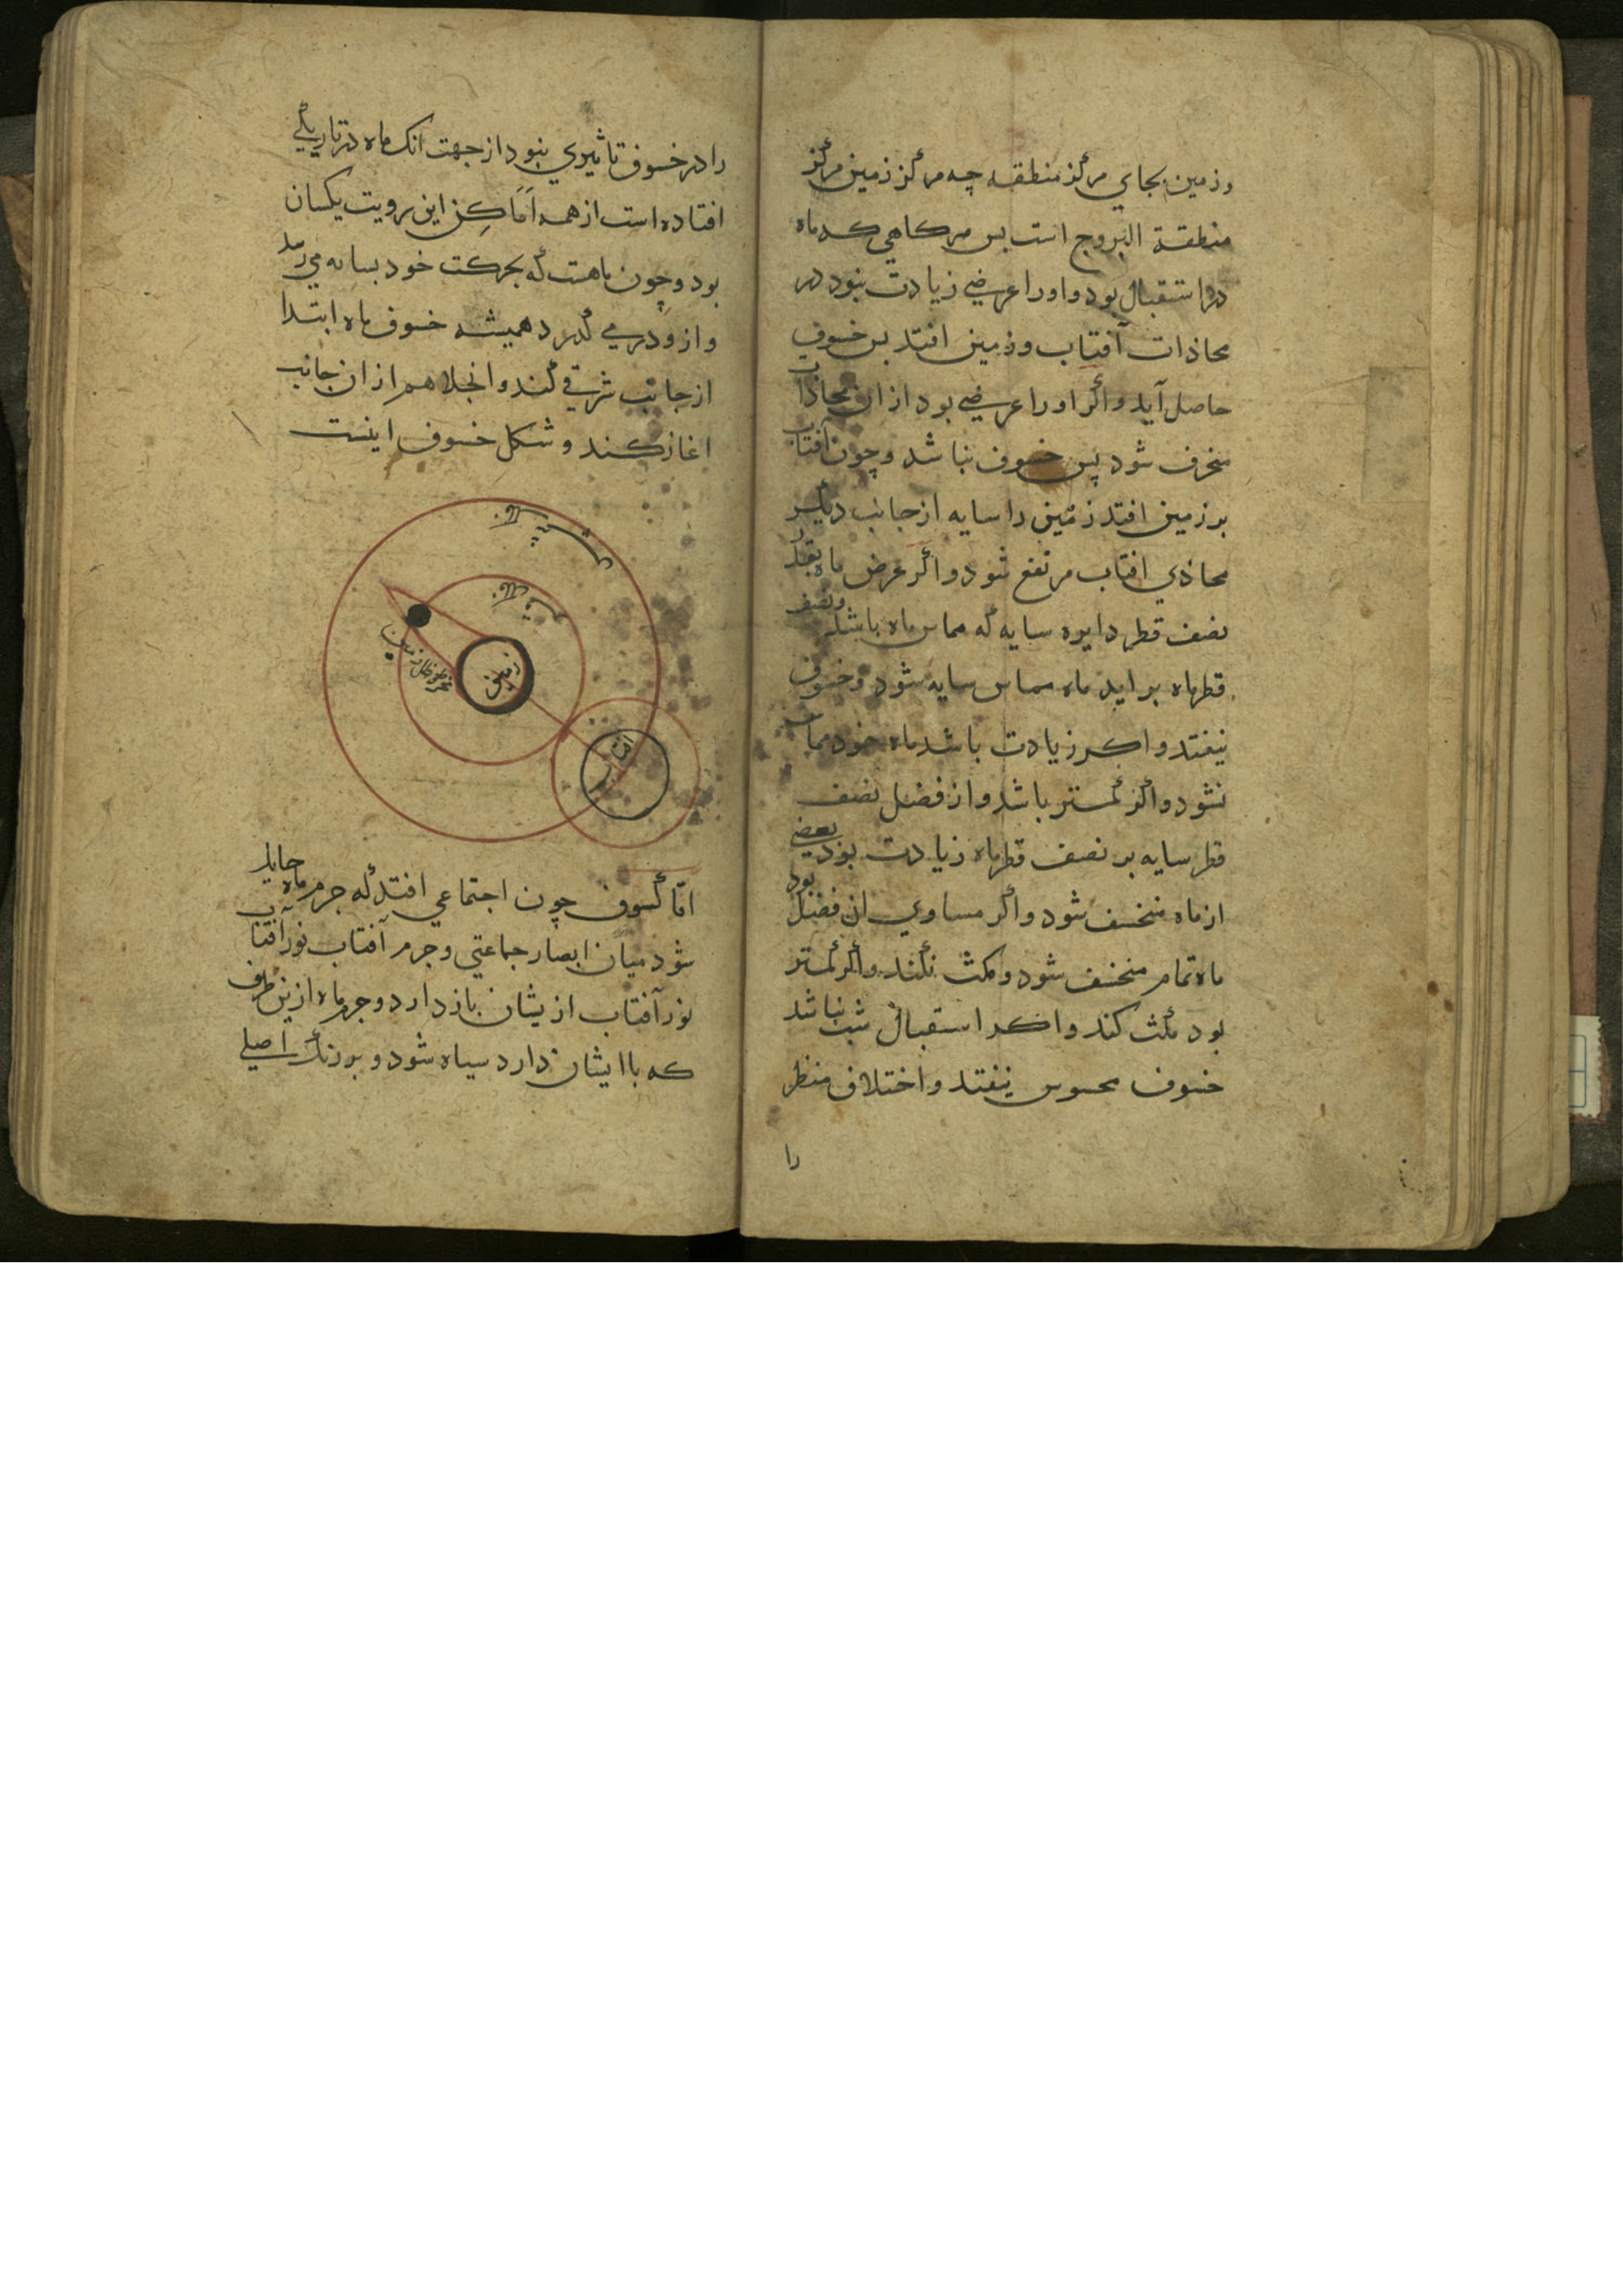 وزمین بجاي مرکز منطقه چه مرکز زمین مرکز
منطقة البروج است بس هرکاهي که ماه
در استقبال بود و اورا عرضي زیادت نبود در
محاذات آفتاب وزمین افتد بس خسوف
حاصل آید واکر اورا عرضي بود ازان محاذات
منحرف شود پس خسوف نباشد وچون آفتاب
بر زمین افتد زمین را سایه از جانب دیکر
محاذي افتاب مرتفع شود واکر عرض ماه بقدر
نصف قطر دایره سایه که مماس ماه باشد ونصف
قطر ماه براید ماه مماس سایه شود وخسوف
نیفتد واکر زیادت باشد ماه خود مماس
نشود واکر کمتر باشد واز فضل نصف
قطر سایه بر نصف قطر ماه زیادت بود بعضي
از ماه منخسف شود واکر مساوي ان فضل بود
ماه تمام منخسف شود ومکث نکند واکر کمتر
بود مکث کند واکر استقبال شب نباشد
خسوف محسوس نیفتد واختلاف منظر
را
را در خسوف تاثیري نبود از جهت انک ماه در تاریکي
افتاده است از همه اماکن این رویت یکسان
بود وچون ماهست که بحرکت خود بسایه مي رسد
وازو در مي کذرد همیشه خسوف ماه ابتدا
از جانب شرقي کند وانجلا هم ازان جانب
اغاز کند وشکل خسوف اینست
زمین
مخروط ظل زمین
افتاب
امّا کسوف چون اجتماعي افتد که جرم ماه حایل
شود میان ابصار جماعتي وجرم آفتاب نور آفتاب
نور آفتاب ازیشان باز دارد وجرم ماه ازین طرف
که باایشان دارد سیاه شود وبر رنک اصلي